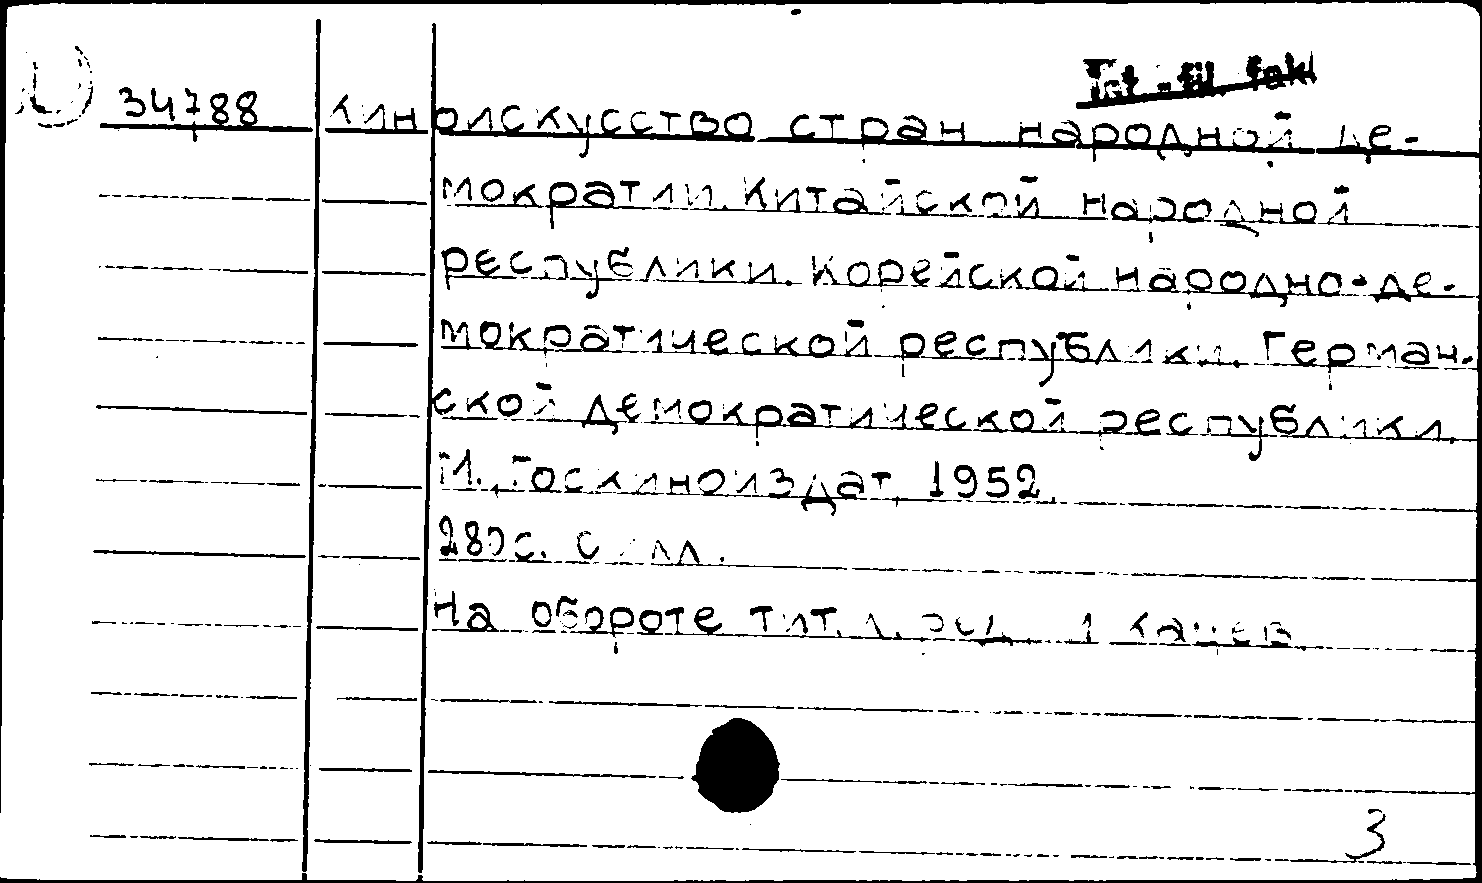 Int.-fil. fak.
34788 Киноискусство стран народной де-
мократии. Китайской народной
республики. Корейской народно-де-
мократической республики. Герман-
ской демократической республики.
М., Госкиноиздат, 1952.
280с. с илл.
На обороте тит. л. ред. 1 Кацев
3